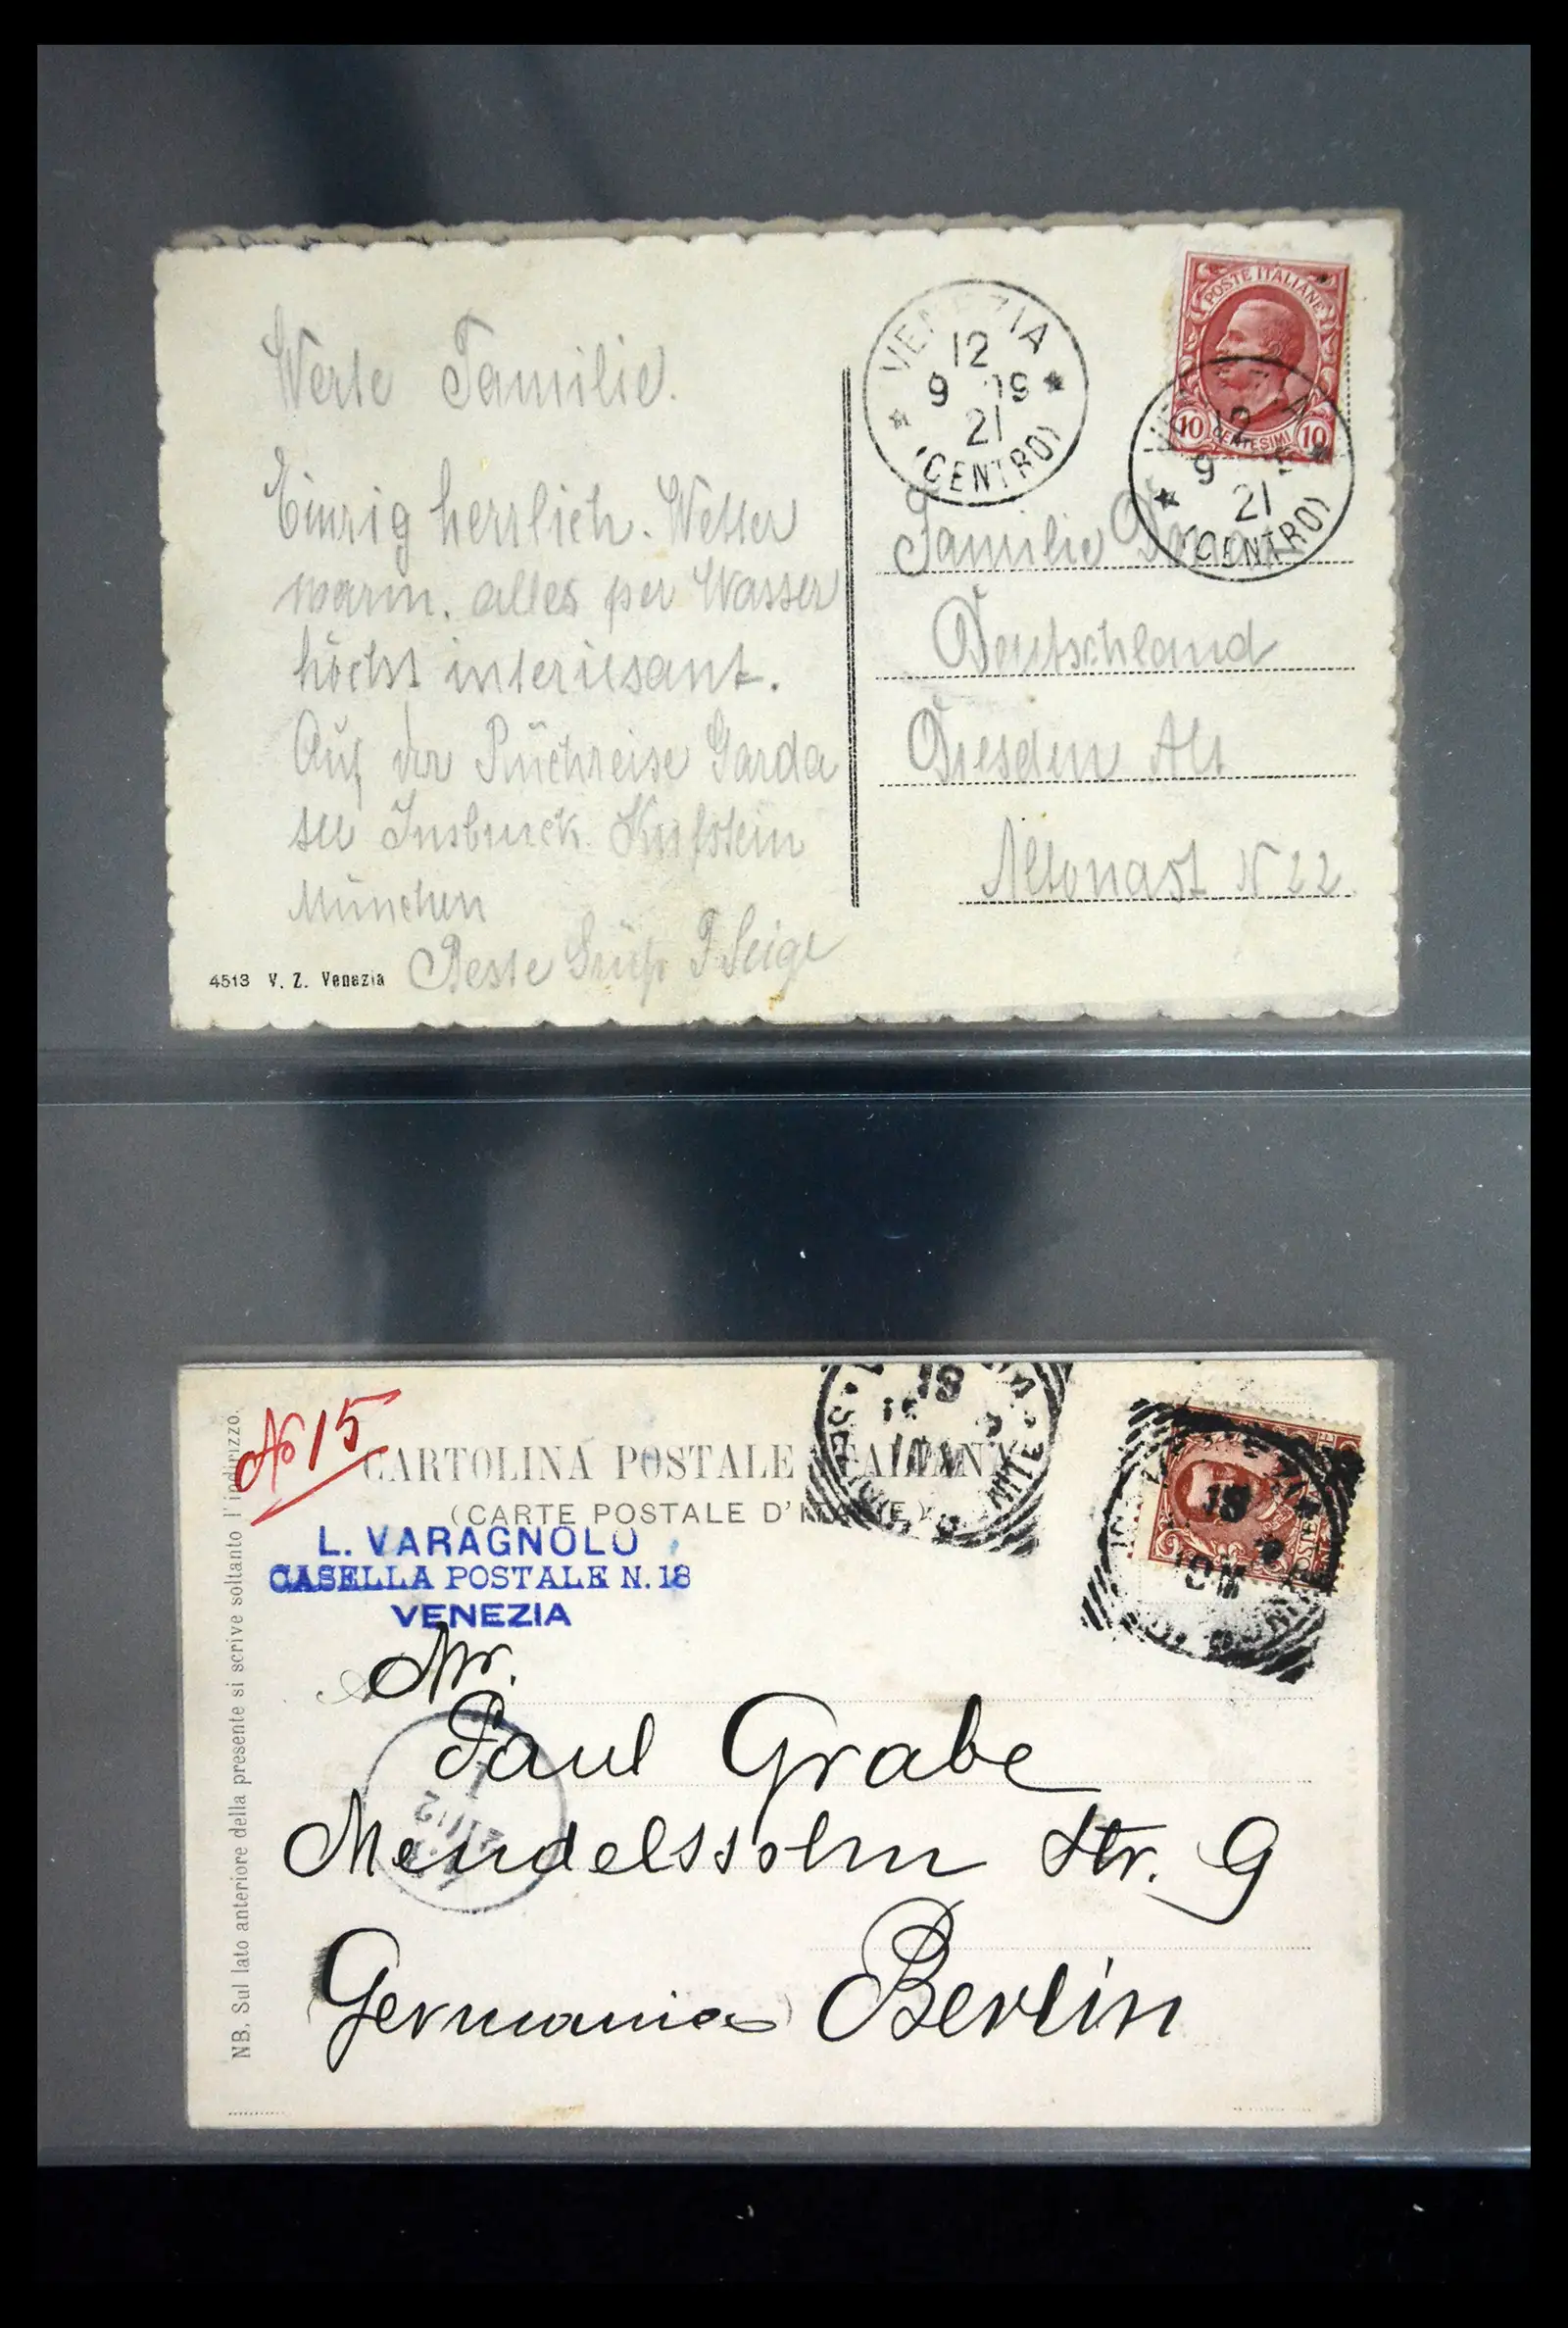 Werte Familie.
Einzig herrlich. Wetter
warm. alles per Wasser
höchst interissant.
Auf der Rückreise Garda
see Insbruck. Kufstein
München
Beste Grüße
4513 V. Z. Venezia
VENEZIA
12
9 19
21
(CENTRO)
POSTE ITALIANE
10 CENTESIMI 10
12
9
21
(CENTRO)
Familie
Deutschland
Dresden Alt
Altonast N 22
No 15
CARTOLINA POSTALE ITALIANA
(CARTE POSTALE D'ITALIE)
L. VARAGNOLO
CASELLA POSTALE N. 18
VENEZIA
18
18
POSTE
Mr.
Paul Grabe
Mendelssohn Str. 9
Germania Berlin
NB. Sul lato anteriore della presente si scrive soltanto l'indirizzo.